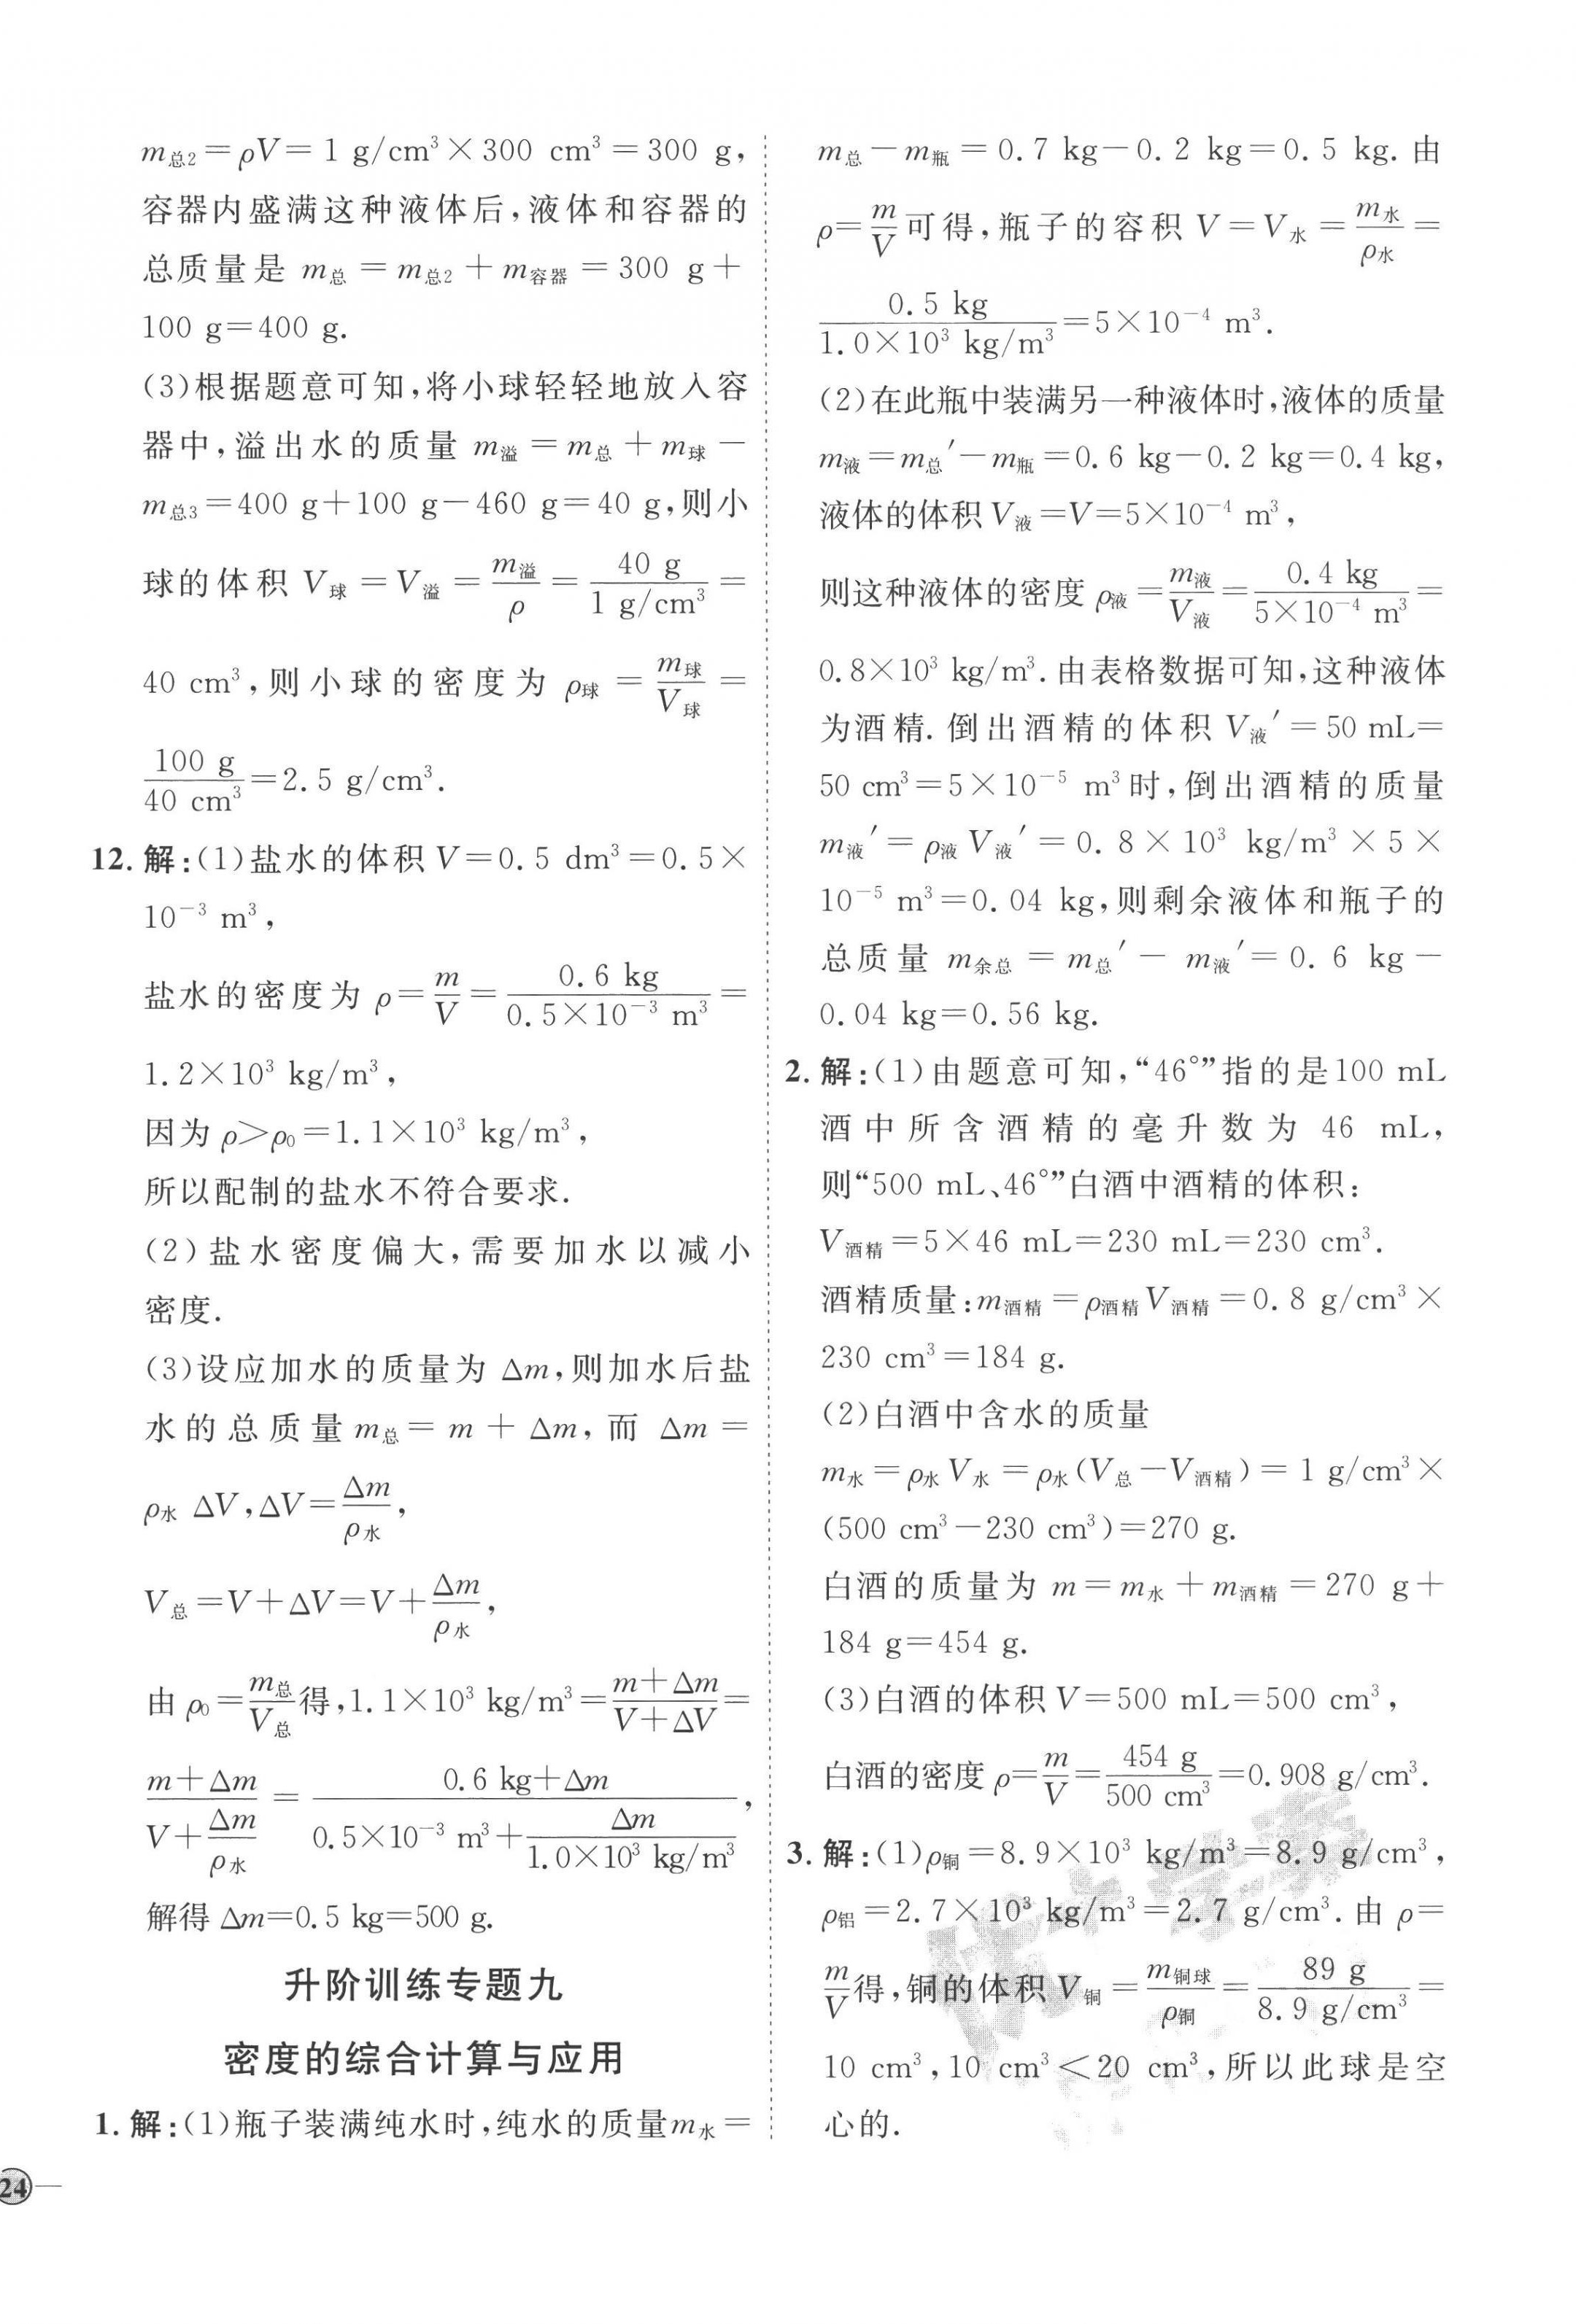 m总2＝ρV＝1 g/cm³×300 cm³＝300 g,
容器内盛满这种液体后,液体和容器的
总质量是 m总＝m总2＋m容器＝300 g＋
100 g＝400 g.
(3)根据题意可知,将小球轻轻地放入容
器中,溢出水的质量 m溢＝m总＋m球－
m总3＝400 g＋100 g－460 g＝40 g,则小
球的体积 V球＝V溢＝m溢/ρ＝40 g/1 g/cm³＝
40 cm³,则小球的密度为 ρ球＝m球/V球＝
100 g/40 cm³＝2.5 g/cm³.
12. 解:(1)盐水的体积 V＝0.5 dm³＝0.5×
10⁻³ m³,
盐水的密度为 ρ＝m/V＝0.6 kg/0.5×10⁻³ m³＝
1.2×10³ kg/m³,
因为 ρ＞ρ0＝1.1×10³ kg/m³,
所以配制的盐水不符合要求.
(2)盐水密度偏大,需要加水以减小
密度.
(3)设应加水的质量为 Δm,则加水后盐
水的总质量 m总＝m＋Δm,而 Δm＝
ρ水 ΔV,ΔV＝Δm/ρ水,
V总＝V＋ΔV＝V＋Δm/ρ水,
由 ρ0＝m总/V总得,1.1×10³ kg/m³＝m＋Δm/V＋ΔV＝
(m＋Δm)/(V＋Δm/ρ水)＝(0.6 kg＋Δm)/(0.5×10⁻³ m³＋Δm/1.0×10³ kg/m³),
解得 Δm＝0.5 kg＝500 g.
升阶训练专题九
密度的综合计算与应用
1. 解:(1)瓶子装满纯水时,纯水的质量m水＝
24
m总－m瓶＝0.7 kg－0.2 kg＝0.5 kg.由
ρ＝m/V可得,瓶子的容积 V＝V水＝m水/ρ水＝
0.5 kg/1.0×10³ kg/m³＝5×10⁻⁴ m³.
(2)在此瓶中装满另一种液体时,液体的质量
m液＝m总′－m瓶＝0.6 kg－0.2 kg＝0.4 kg,
液体的体积 V液＝V＝5×10⁻⁴ m³,
则这种液体的密度 ρ液＝m液/V液＝0.4 kg/5×10⁻⁴ m³＝
0.8×10³ kg/m³.由表格数据可知,这种液体
为酒精.倒出酒精的体积 V液′＝50 mL＝
50 cm³＝5×10⁻⁵ m³时,倒出酒精的质量
m液′＝ρ液V液′＝0.8×10³ kg/m³×5×
10⁻⁵ m³＝0.04 kg,则剩余液体和瓶子的
总质量 m余总＝m总′－m液′＝0.6 kg－
0.04 kg＝0.56 kg.
2. 解:(1)由题意可知,“46°”指的是100 mL
酒中所含酒精的毫升数为 46 mL,
则“500 mL、46°”白酒中酒精的体积:
V酒精＝5×46 mL＝230 mL＝230 cm³.
酒精质量:m酒精＝ρ酒精V酒精＝0.8 g/cm³×
230 cm³＝184 g.
(2)白酒中含水的质量
m水＝ρ水V水＝ρ水(V总－V酒精)＝1 g/cm³×
(500 cm³－230 cm³)＝270 g.
白酒的质量为 m＝m水＋m酒精＝270 g＋
184 g＝454 g.
(3)白酒的体积 V＝500 mL＝500 cm³,
白酒的密度 ρ＝m/V＝454 g/500 cm³＝0.908 g/cm³.
3. 解:(1)ρ铜＝8.9×10³ kg/m³＝8.9 g/cm³,
ρ铝＝2.7×10³ kg/m³＝2.7 g/cm³.由 ρ＝
m/V得,铜的体积 V铜＝m铜球/ρ铜＝89 g/8.9 g/cm³＝
10 cm³,10 cm³＜20 cm³,所以此球是空
心的.